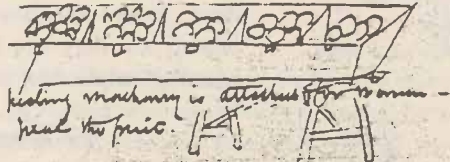 peeling machinery is attached for women -
peal the fruit.